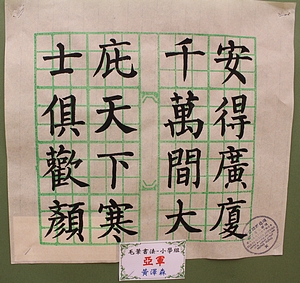 安得廣廈
千萬間大
庇天下寒
士俱歡顏
毛筆書法-小學組
亞軍
黃澤森